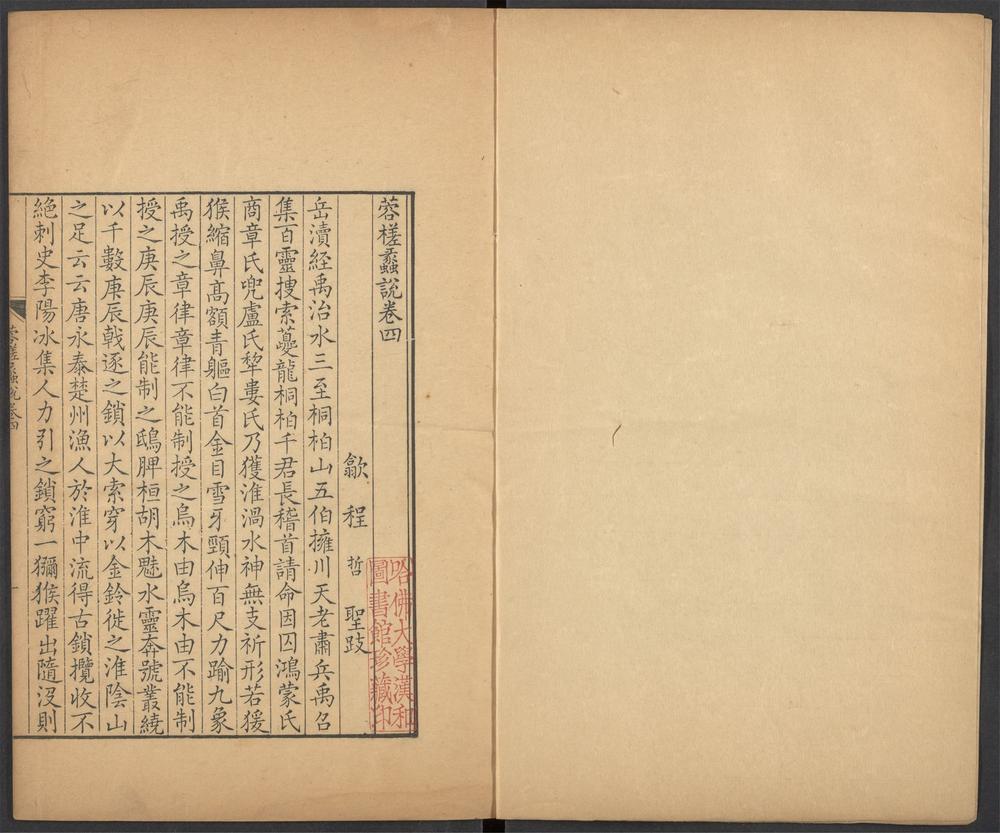 蓉槎蠡說卷四
歙　程　哲　聖跂
岳瀆經禹治水三至桐柏山五伯擁川天老肅兵禹召
集百靈搜索夔龍桐柏千君長稽首請命因囚鴻蒙氏
商章氏兜盧氏犂婁氏乃獲淮渦水神無支祈形若猨
猴縮鼻高額青軀白首金目雪牙頸伸百尺力踰九象
禹授之章律章律不能制授之烏木由烏木由不能制
授之庚辰庚辰能制之鴟脾桓胡木魅水靈奔號叢繞
以千數庚辰戟逐之鎖以大索穿以金鈴徙之淮陰山
之足云云唐永泰楚州漁人於淮中流得古鎖攬收不
絕刺史李陽冰集人力引之鎖窮一獼猴躍出隨沒則
蓉槎蠡說卷四
一
哈佛大學漢和
圖書館珍藏印